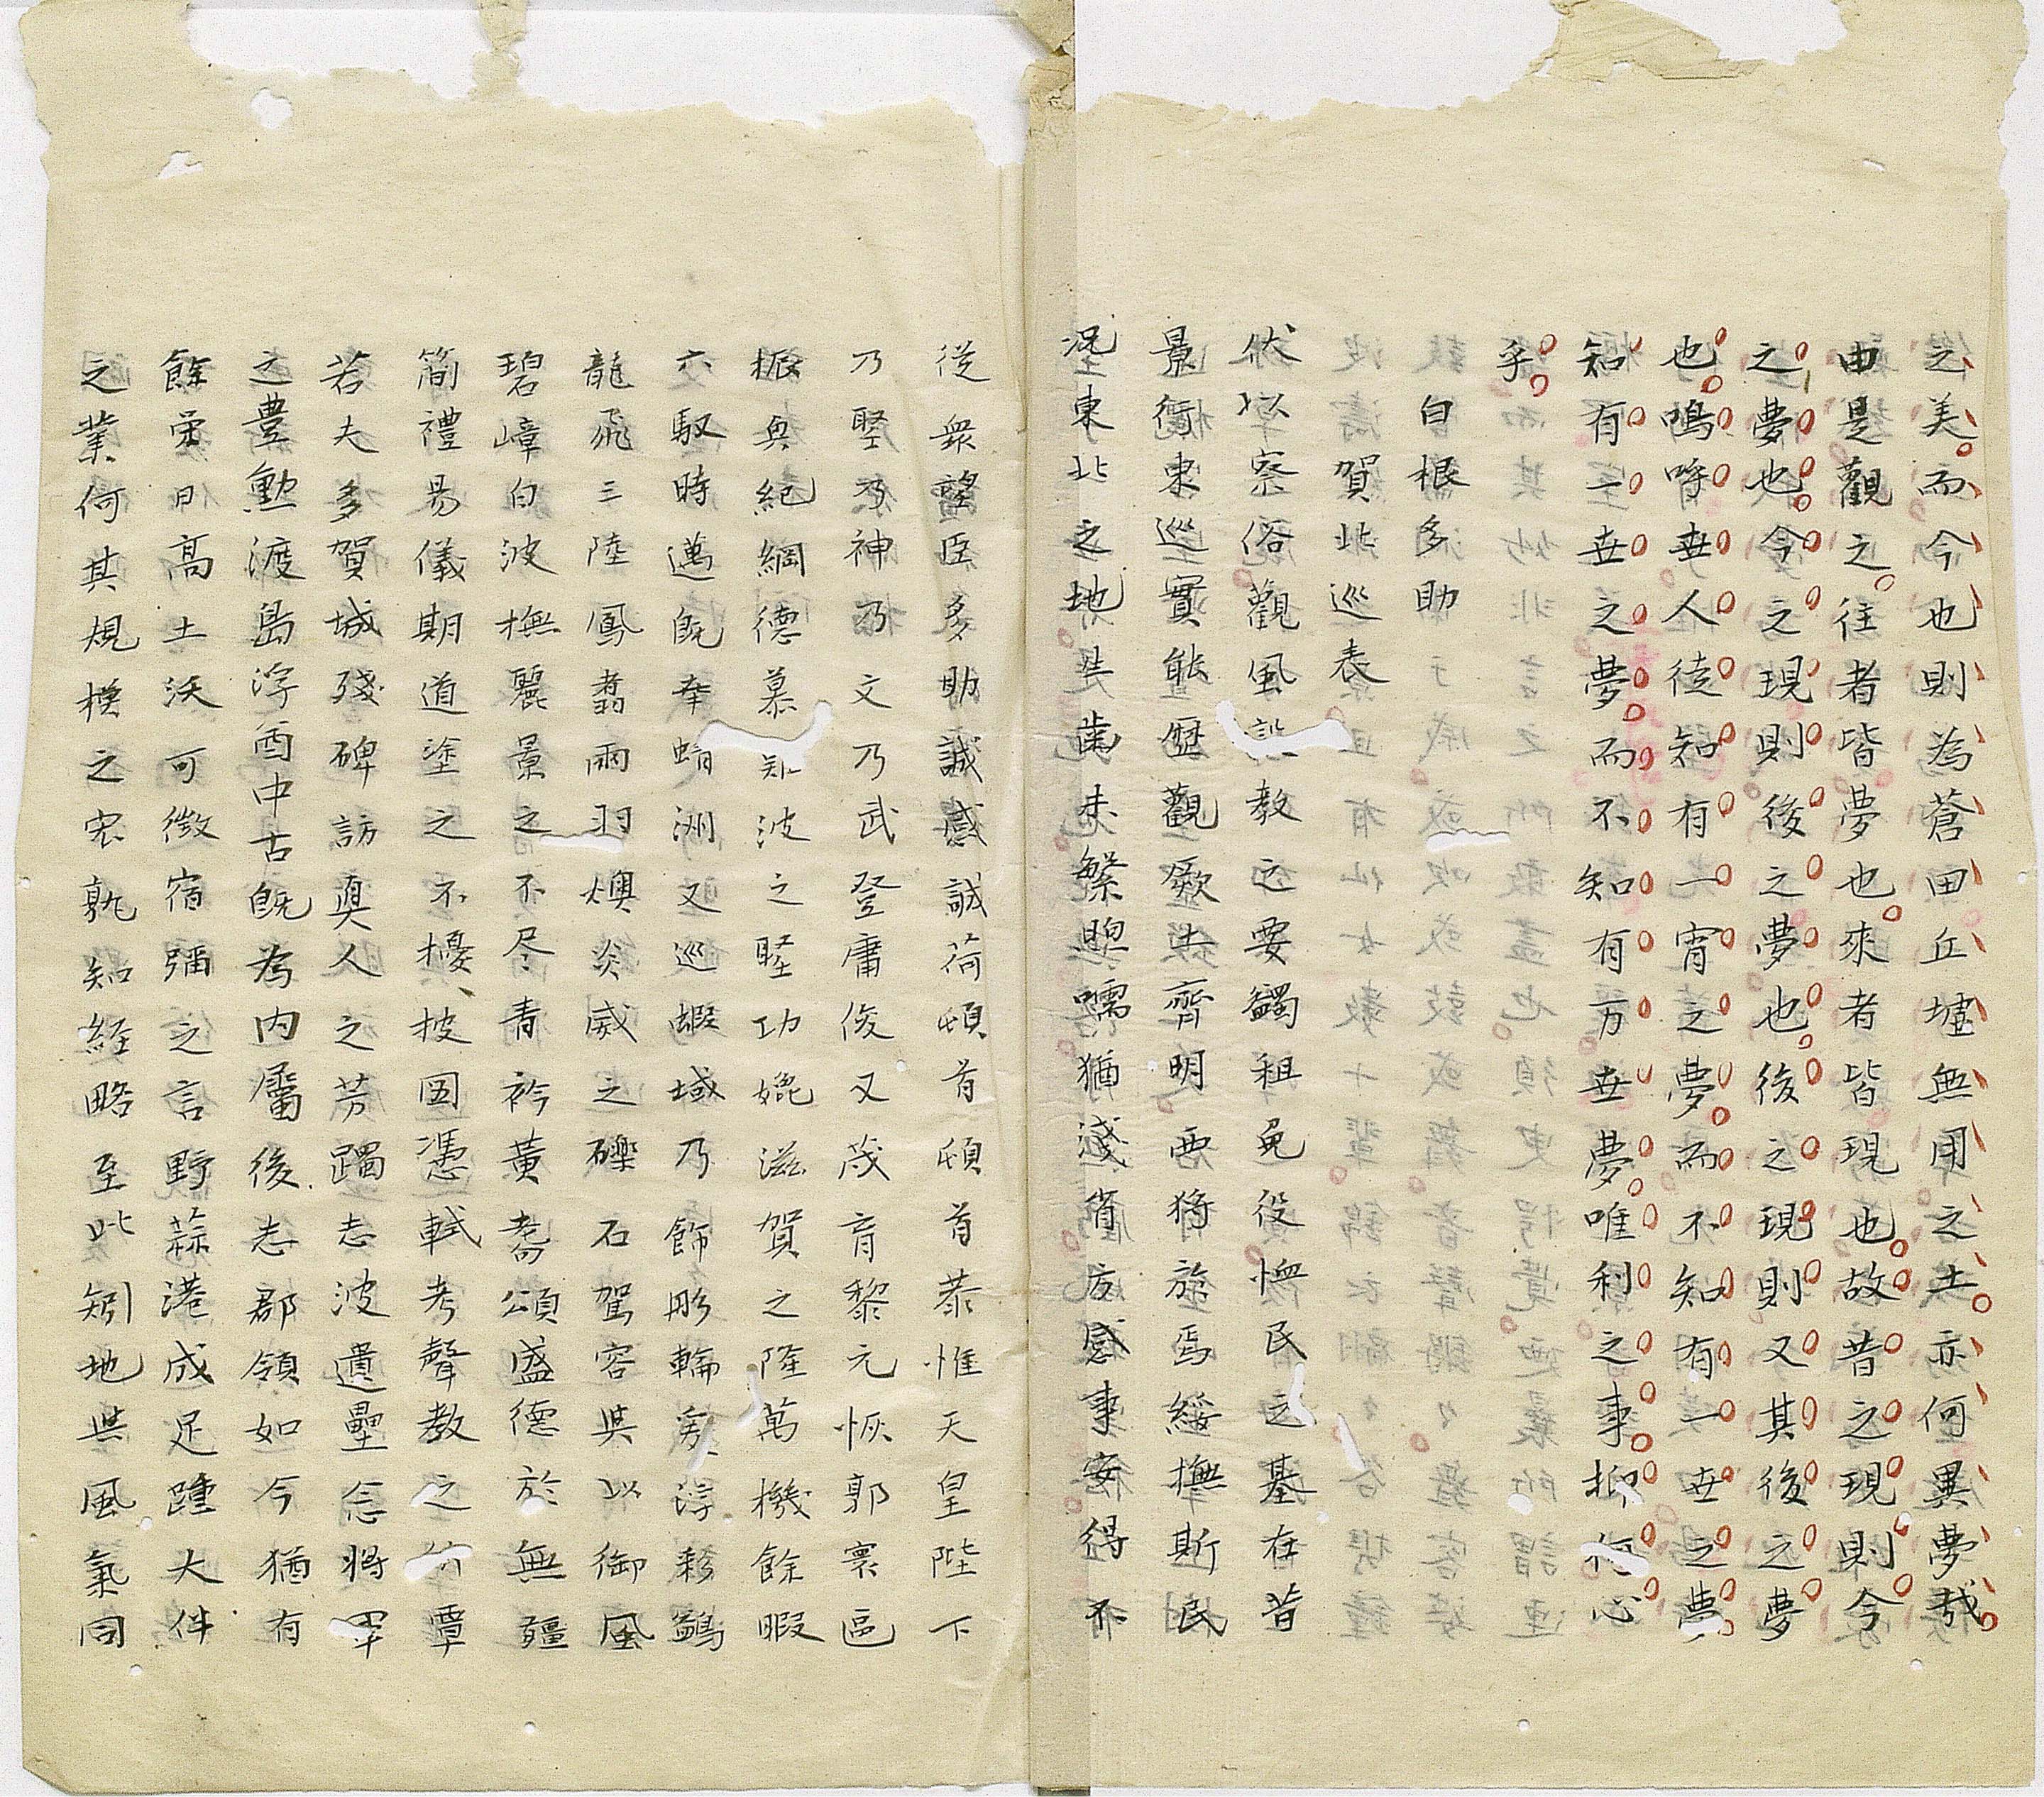 之美而今也則為蒼田丘墟無用之土亦何異夢哉
由是觀之往者皆夢也來者皆現也故昔之現則今
之夢也今之現則後之夢也後之現則又其後之夢
也嗚呼世人徒知有一宵之夢而不知有一世之夢
知有一世之夢而不知有万世夢唯利之事抑何心
乎
白根多助
賀北巡表
伏以察俗觀風設教之要蠲租免役恤民之基在昔
景行東巡實能歴觀厥土齊明西狩於焉綏撫斯民
況東北之地生歯未繁黔黎猶淺省方盛事安得不
從衆望臣多助誠感誠荷頓首頓首恭惟天皇陛下
乃聖乃神乃文乃武登庸俊乂茂育黎元恢郭寰區
振興紀綱德慕難波之聖功媲滋賀之隆萬機餘暇
六馭時邁既奉蜻洲又巡蝦域乃飾彤輪爰浮彩鷁
龍飛三陸鳳翥兩羽燠炎威之礫石駕容與以御風
碧嶂白波撫麗景之不尽青衿黃耇頌盛德於無疆
簡禮易儀期道塗之不擾披図憑軾考聲教之覃
若夫多賀城殘碑訪真人之芳躅志波遺壘念將軍
之豊勳渡島浮酋中古既為内屬後志郡領如今猶有
餘榮日高土沃可徵宿彌之言野蒜港成足踵大伴
之業何其規模之宏孰知経略至此矧地與風氣同